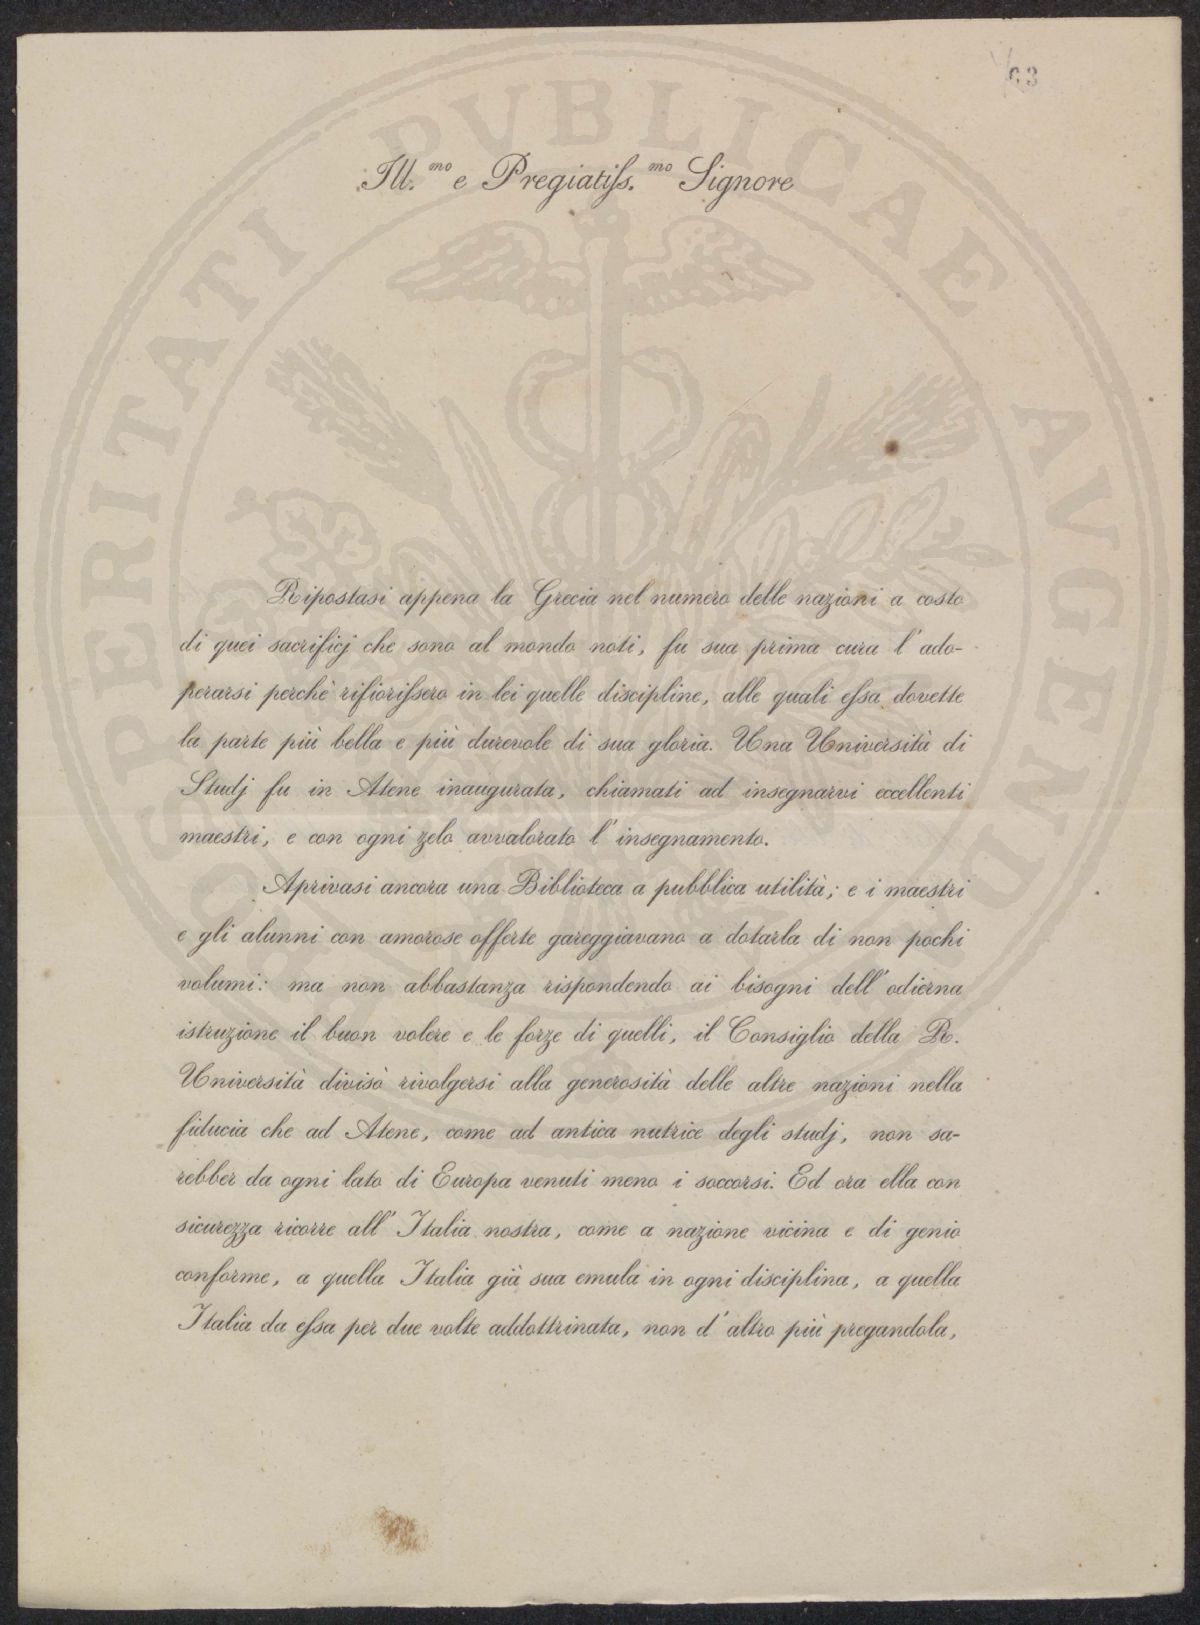 63
Ill.mo e Pregiatiſs.mo Signore
Ripostasi appena la Grecia nel numero delle nazioni a costo
di quei sacrificj che sono al mondo noti, fu sua prima cura l'ado-
perarsi perchè rifioriſsero in lei quelle discipline, alle quali eſsa dovette
la parte più bella e più durevole di sua gloria. Una Università di
Studj fu in Atene inaugurata, chiamati ad insegnarvi eccellenti
maestri, e con ogni zelo avvalorato l'insegnamento.
Aprivasi ancora una Biblioteca a pubblica utilità; e i maestri
e gli alunni con amorose offerte gareggiavano a dotarla di non pochi
volumi: ma non abbastanza rispondendo ai bisogni dell'odierna
istruzione il buon volere e le forze di quelli, il Consiglio della R.
Università divisò rivolgersi alla generosità delle altre nazioni nella
fiducia che ad Atene, come ad antica nutrice degli studj, non sa-
rebber da ogni lato di Europa venuti meno i soccorsi. Ed ora ella con
sicurezza ricorre all'Italia nostra, come a nazione vicina e di genio
conforme, a quella Italia già sua emula in ogni disciplina, a quella
Italia da eſsa per due volte addottrinata, non d'altro più pregandola,
PROSPERITATI PVBLICAE AVGENDAE